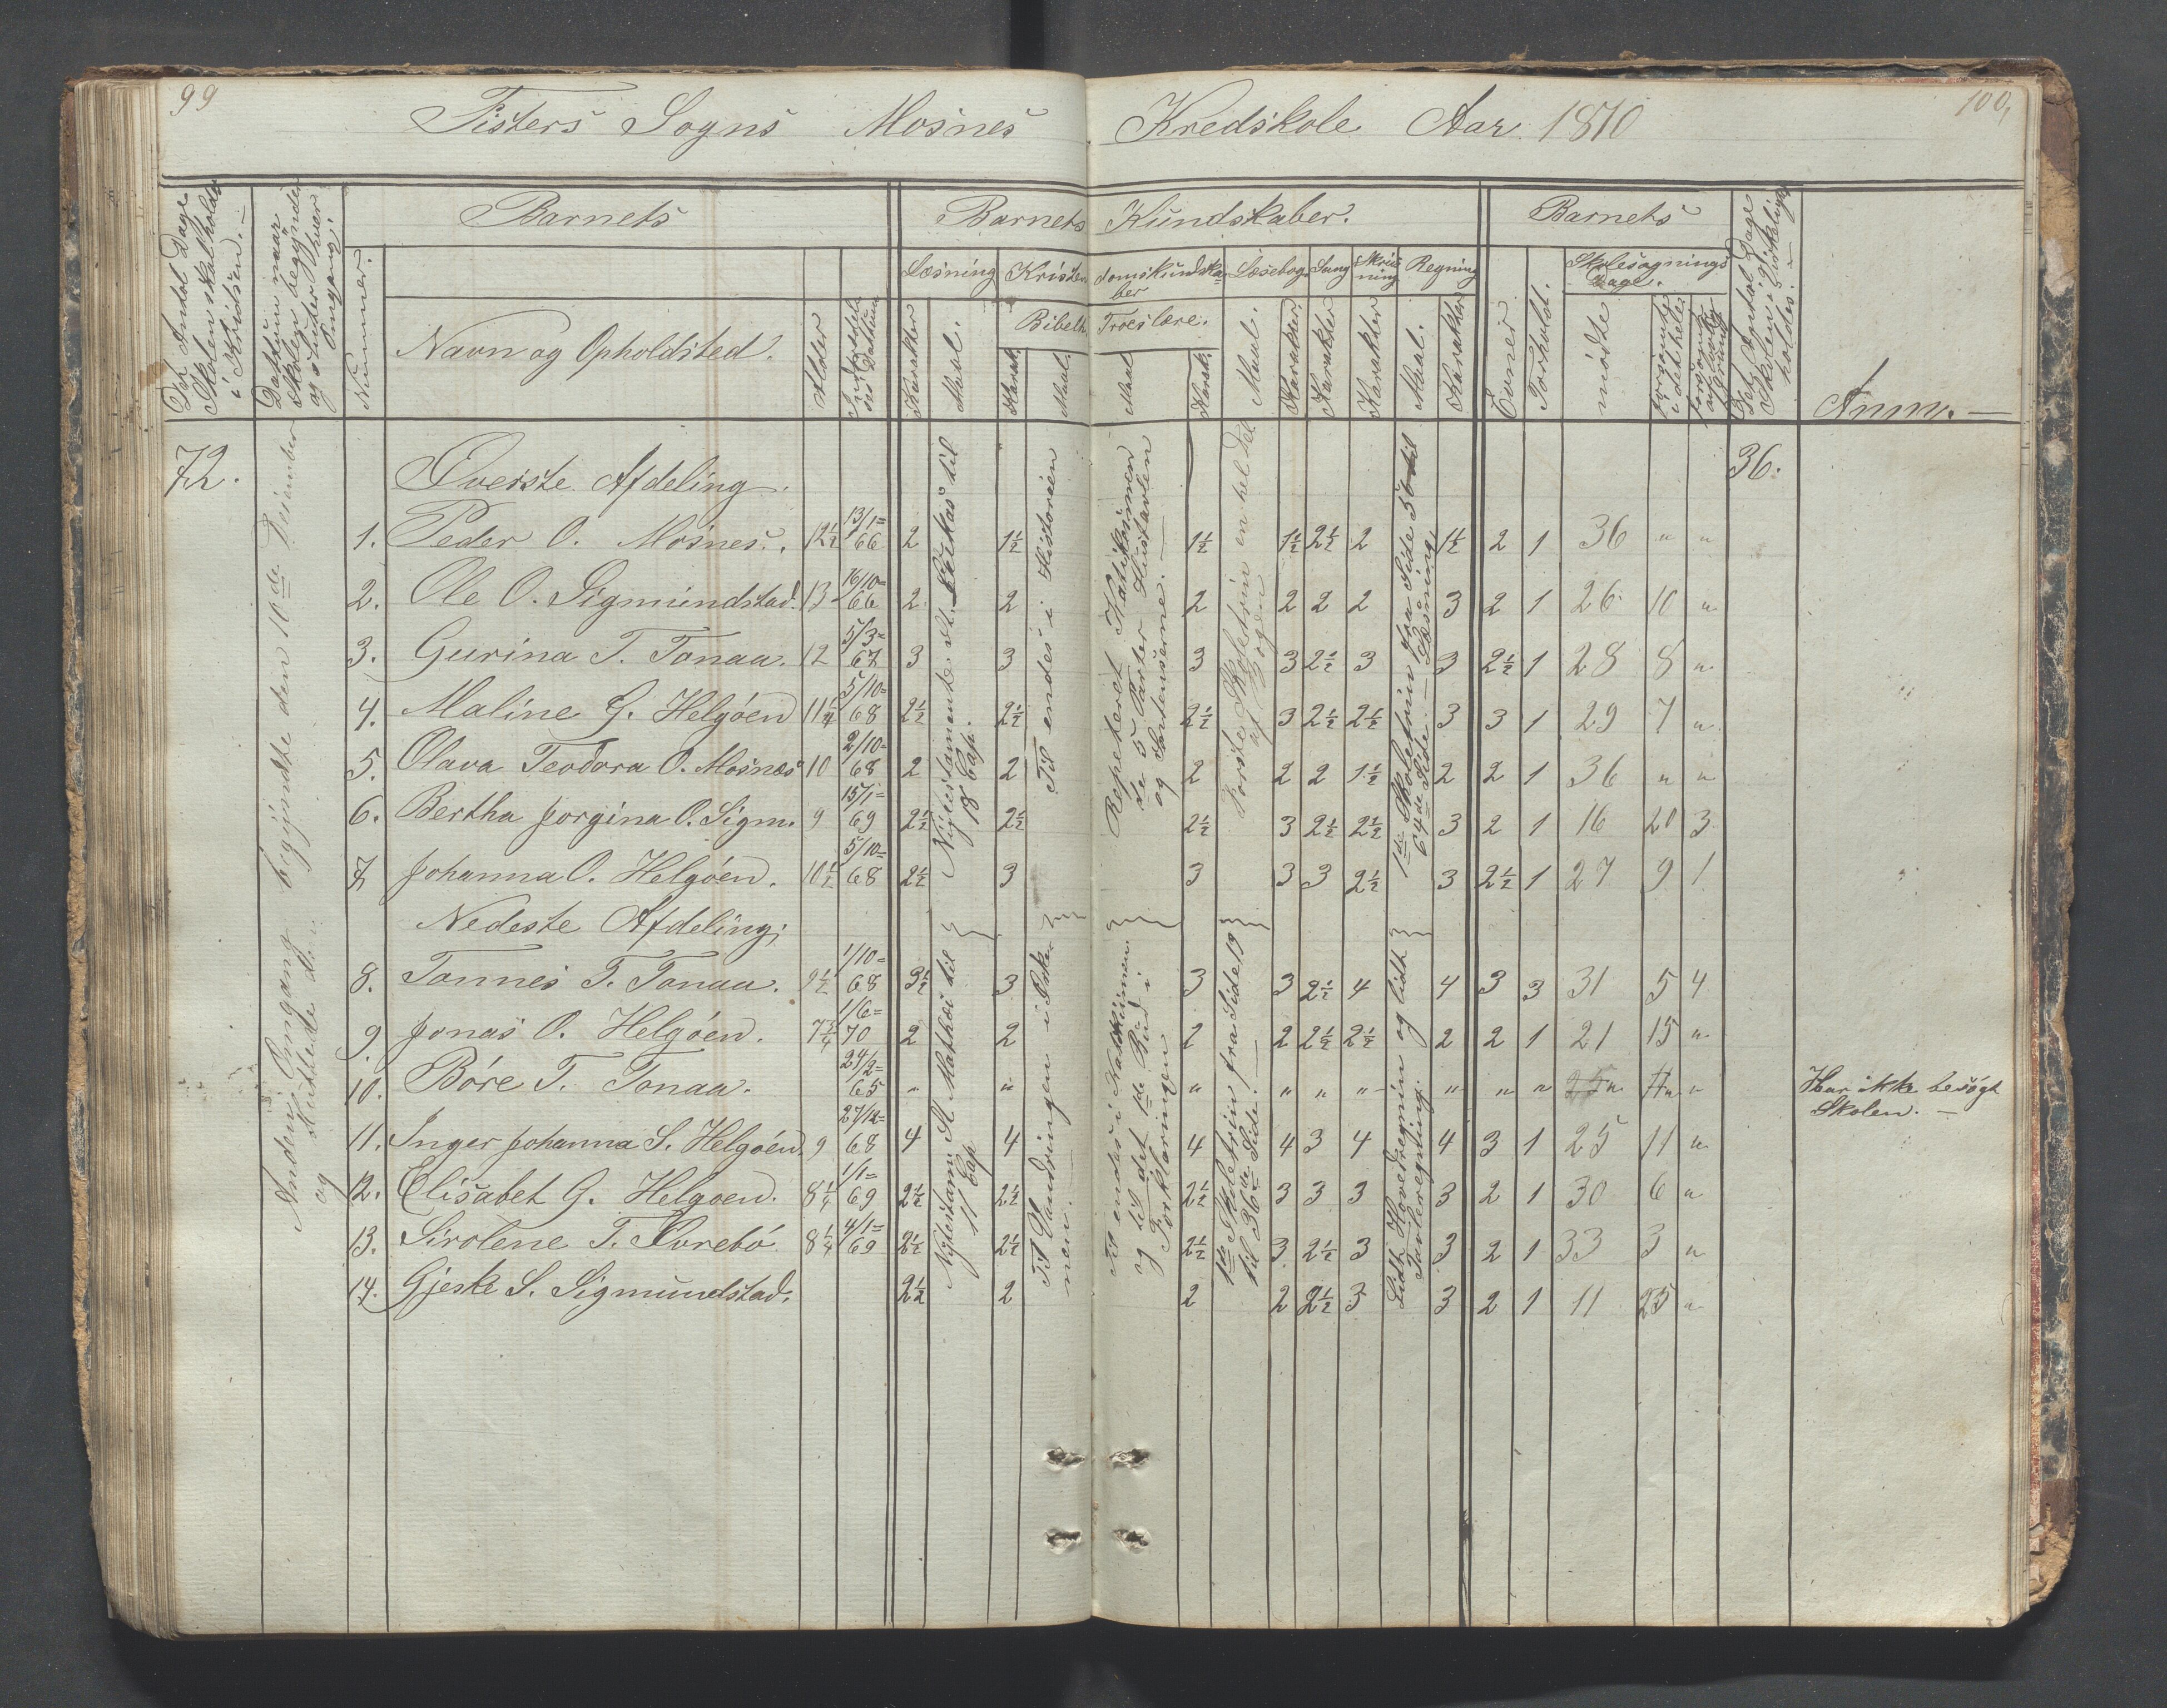 99
100,
Fisters Sogns Mosnes Kredskole Aar 1870
Det Antal Dage Skolen skal holdes i Kredsen. —
Datum naar Skolen begynder og slutter hver Omgang.
Nummer.
Barnets
Navn og Opholdsted.
Alder
Barnets Kundskaber.
Læsning
Karakter
Maal.
Kristendomskundskaber
Bibelh.
Karak.
Maal.
Troeslære.
Maal
Karak.
Læsebog
Maal.
Karakter
Sang
Karakter
Skrivning
Karakter
Regning
Maal.
Karakter
Barnets
Evner
Forhold.
Skolesøgnings Dage.
mødte
forsømte i det hele
Det Antal Dage Skolen i Virkelighed holdes. —
Anm. —
72.
Anden Omgang begyndte den 10de Desember
og sluttede d.
36.
Øverste Afdeling.
1. Peder O. Mosnes. 12½ 13/1= 66 2 1½ 1½ 1½ 2½ 2 1½ 2 1 36 " "
2. Ole O. Sigmundstad. 13 16/10= 66 2 2 2 2 2 2 3 2 1 26 10 "
3. Gurina T. Tonaa. 12 5/3= 67 3 3 3 3 2½ 3 3 2½ 1 28 8 "
4. Maline G. Helgøen 11¼ 5/10= 68 2½ 2½ 2½ 3 2½ 2½ 3 3 1 29 7 "
5. Olava Teodora O. Mosnæs 10 2/10= 68 2 2 2 2 2 1½ 2 2 1 36 " "
6. Bertha Jorgina O. Sigm. 9 15/1= 69 2½ 2½ 2½ 3 2½ 2½ 3 2 1 16 20 3
7 Johanna O. Helgøen. 10½ 5/10= 68 2½ 3 3 3 3 2½ 3 2½ 1 27 9 1
Nytestamente St. Lukas til 18 Cap.
Til endes i Historien
Repeteret Katikismen
de 5 Parter Hustavlen
og Sentenserne. —
Første Skoletrin en hel Del
af Bogen
1de Skoletrin fra Side 50 til
64de Side. — Læsning,
Nedeste Afdeling;
8. Tonnes T. Tonaa. 9½ 1/10= 68 3½ 3 3 3 2½ 4 4 3 3 31 5 4
9. Jonas O. Helgøen. 7¾ 1/6= 70 2 2 2 2 2½ 2½ 2 2 1 21 15 "
10. Børe T. Tonaa. 24/2= 65 " " " " " " " " " " " " Har ikke besøgt
Skolen. —
11. Inger Johanna S. Helgøen. 9 27/12= 68 4 4 4 4 3 4 4 3 1 25 11 "
12. Elisabet G. Helgoen. 8¼ 1/1= 69 2½ 2½ 2½ 3 3 3 3 2 1 30 6 "
13. Sirolene T. Øvrebö 8¼ 4/1= 69 2½ 2½ 2½ 3 2½ 3 3 2 1 33 3 "
14. Gjeske S. Sigmundstad. 2½ 2 2 2 2½ 3 3 2 1 11 25 "
Nytestam. St Mathæi til
11 Cap
Til Vandringen i Ørkenen. —
Til endes i Katekismen
og til det 1de Bud i
Forklaringen
1de Skoletrin fra Side 19
til 36de Side. —
Lidt Hovedregnin og lidt
Tavleregning.